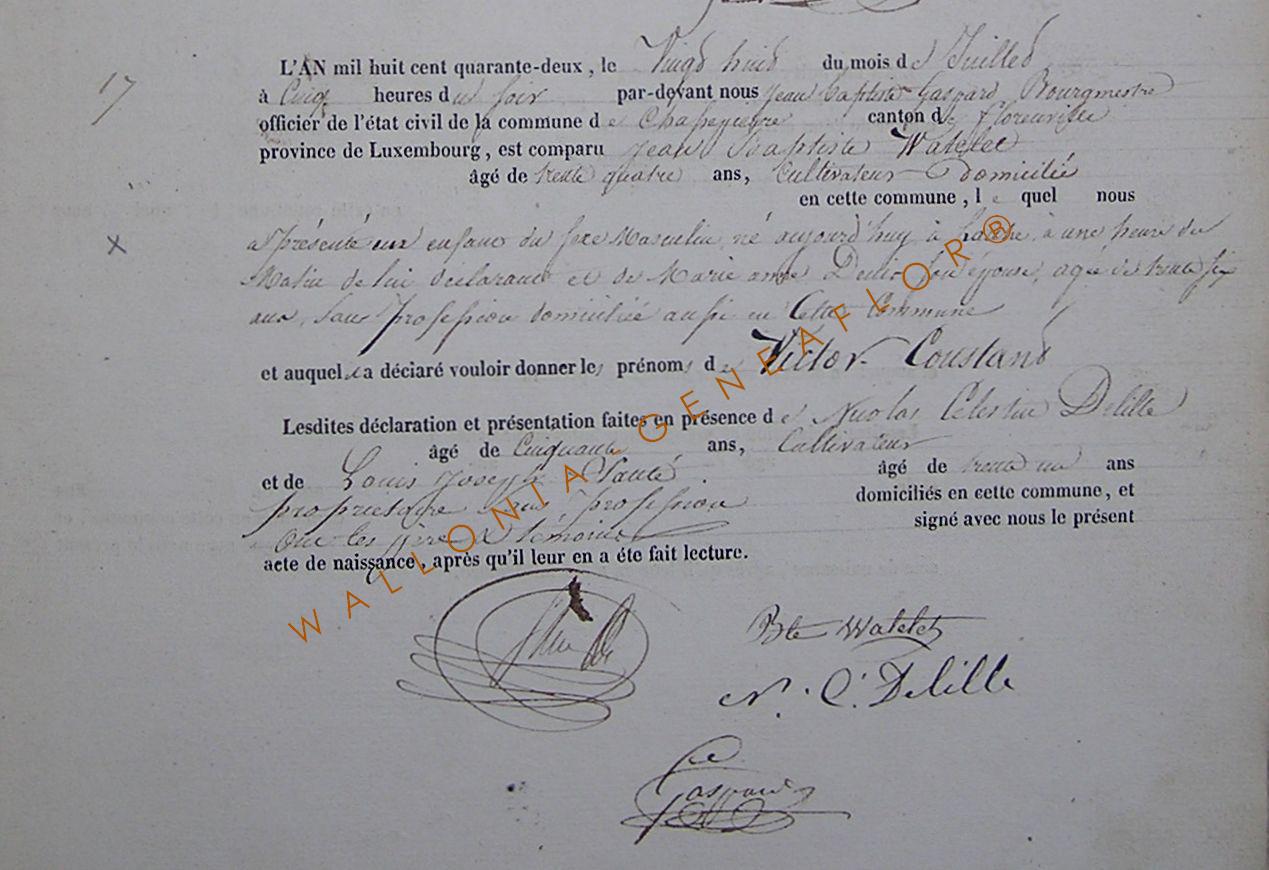 17
L'AN mil huit cent quarante-deux, le Vingt huit du mois de Juillet
à Cinq heures du soir par-devant nous Jean Baptiste Gaspard Bourgmestre
officier de l'état civil de la commune de canton de florenville
province de Luxembourg, est comparu Jean Baptiste Watelet
âgé de trente quatre ans, Cultivateur domicilié
en cette commune, le quel nous
a présenté un enfant du sexe Masculin, né aujourd'huy à à une heure du
Matin de lui déclarant et de Marie anne son épouse, agée de trente six
ans, sans profession domiciliée aussi en Cette Commune
et auquel a déclaré vouloir donner les prénoms de Victor Constant
Lesdites déclaration et présentation faites en présence de Nicolas Celestin Delille
âgé de Cinquante ans, Cultivateur
et de Louis Joseph âgé de trente un ans
propriétaire sans profession domiciliés en cette commune, et
Ont les père & témoins signé avec nous le présent
acte de naissance, après qu'il leur en a éte fait lecture.
Bte Watelet
N. C. Delille
Gaspard
WALLONIA GENEAFLOR®